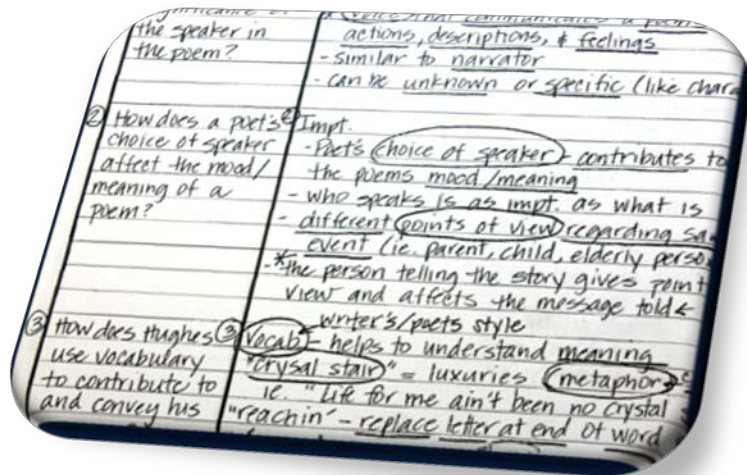 the speaker in
the poem?
② How does a poet's
choice of speaker
affect the mood/
meaning of a
poem?
③ How does Hughes
use vocabulary
to contribute to
and convey his
a voice that communicates a poem
actions, descriptions, & feelings
- similar to narrator
- can be unknown or specific (like chara
② Impt.
- Poet's choice of speaker - contributes to
the poems mood/meaning
- who speaks is as impt. as what is
- different points of view regarding sa
event (ie. parent, child, elderly perso
-* the person telling the story gives point
view and affects the message told ←
writer's/poets style
③ Vocab - helps to understand meaning
"crysal stair" = luxuries metaphor
ie. "Life for me ain't been no crystal
"reachin' - replace letter at end of word